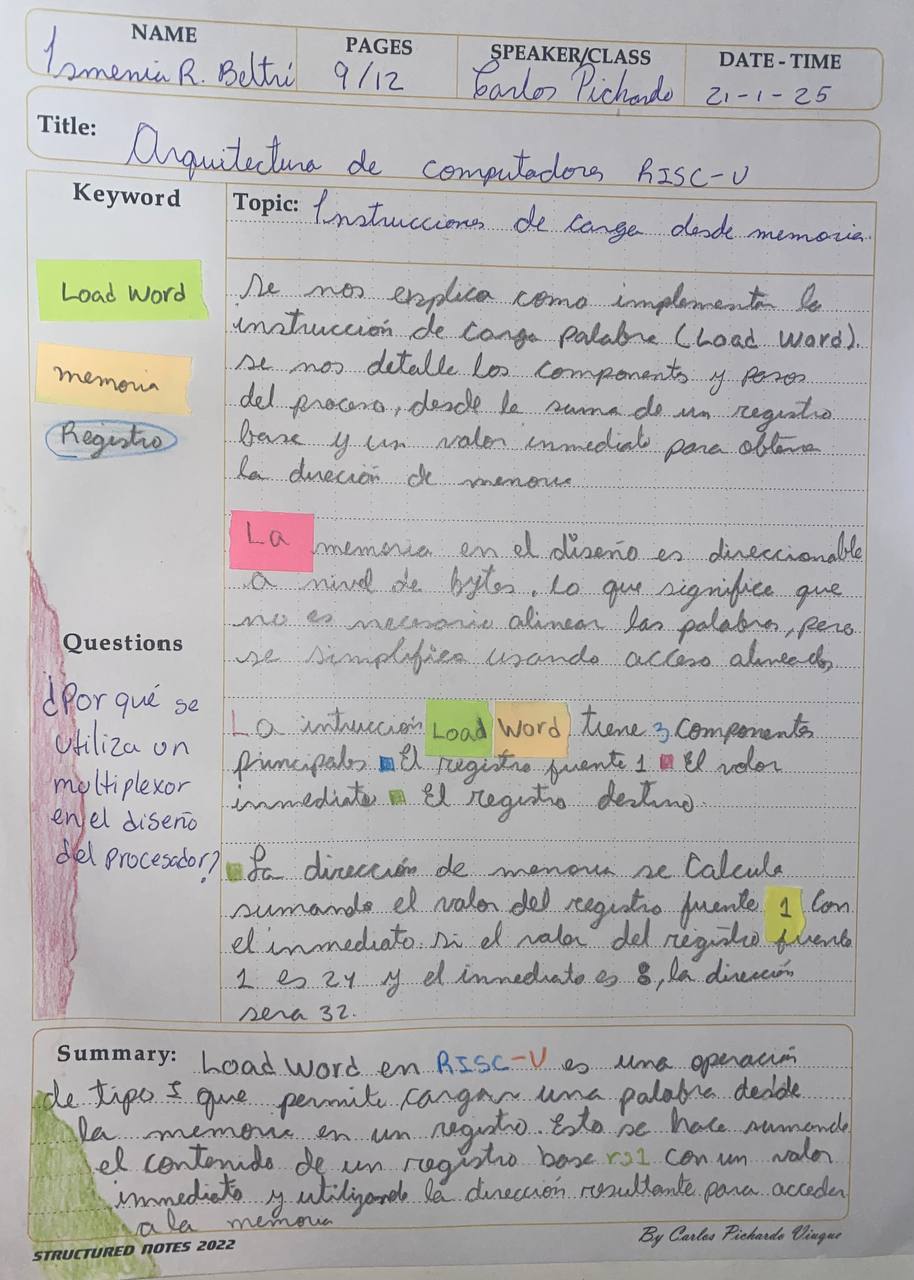 NAME
PAGES
SPEAKER/CLASS
DATE - TIME
Ismenia R. Beltri
9/12
Carlos Pichardo
21-1-25
Title:
Arquitectura de computadores RISC-V
Keyword
Load Word
memoria
Registro
Questions
¿Por qué se
utiliza un
multiplexor
en el diseño
del procesador?
Topic: Instrucciones de carga desde memoria.
se nos explica como implementar la
instrucción de carga palabra (Load Word).
se nos detalle los components y pasos
del proceso, desde la suma de un registro
base y un valor inmediato para obtener
la direción de memoria
La memoria en el diseño es direccionable
a nivel de bytes, lo que significa que
no es necesario alinear las palabras, pero
se simplifica usando acceso alineados
La intrucción Load Word tiene 3 componentes
principales El registro fuente 1 El valor
immediato El registro destino.
La dirección de memoria se calcula
sumando el valor del registro fuente 1 con
el inmediato. si el valor del registro fuente
1 es 24 y el inmediato es 8, la dirección
sera 32.
Summary: Load Word en RISC-V es una operación
de tipo I que permite cargar una palabra desde
la memoria en un registro. Esto se hace sumando
el contenido de un registro base rs1 con un valor
immediato y utilizando la dirección resultante para acceder
a la memoria
STRUCTURED NOTES 2022
By Carlos Pichardo Viuque